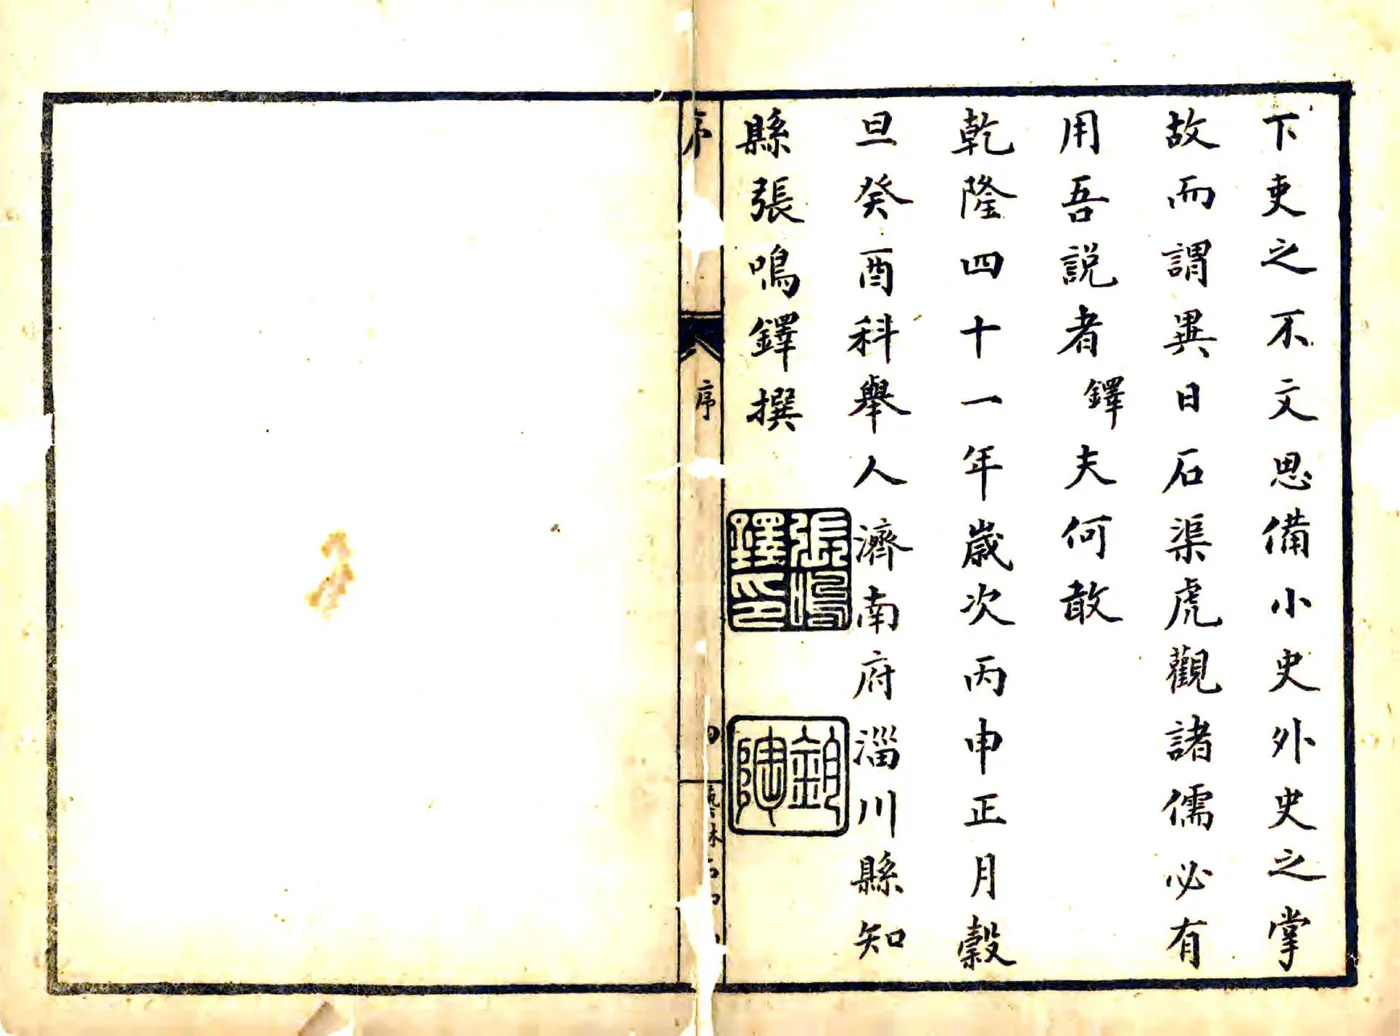 下吏之不文思備小史外史之掌
故而謂異日石渠虎觀諸儒必有
用吾説者鐸夫何敢
乾隆四十一年歲次丙申正月穀
旦癸酉科舉人濟南府淄川縣知
縣張鳴鐸撰
張鳴鐸印
序
序
四